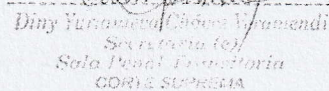 Diny Yurianieva Chávez Veramendi
Secretaria (e)
Sala Penal Transitoria
CORTE SUPREMA